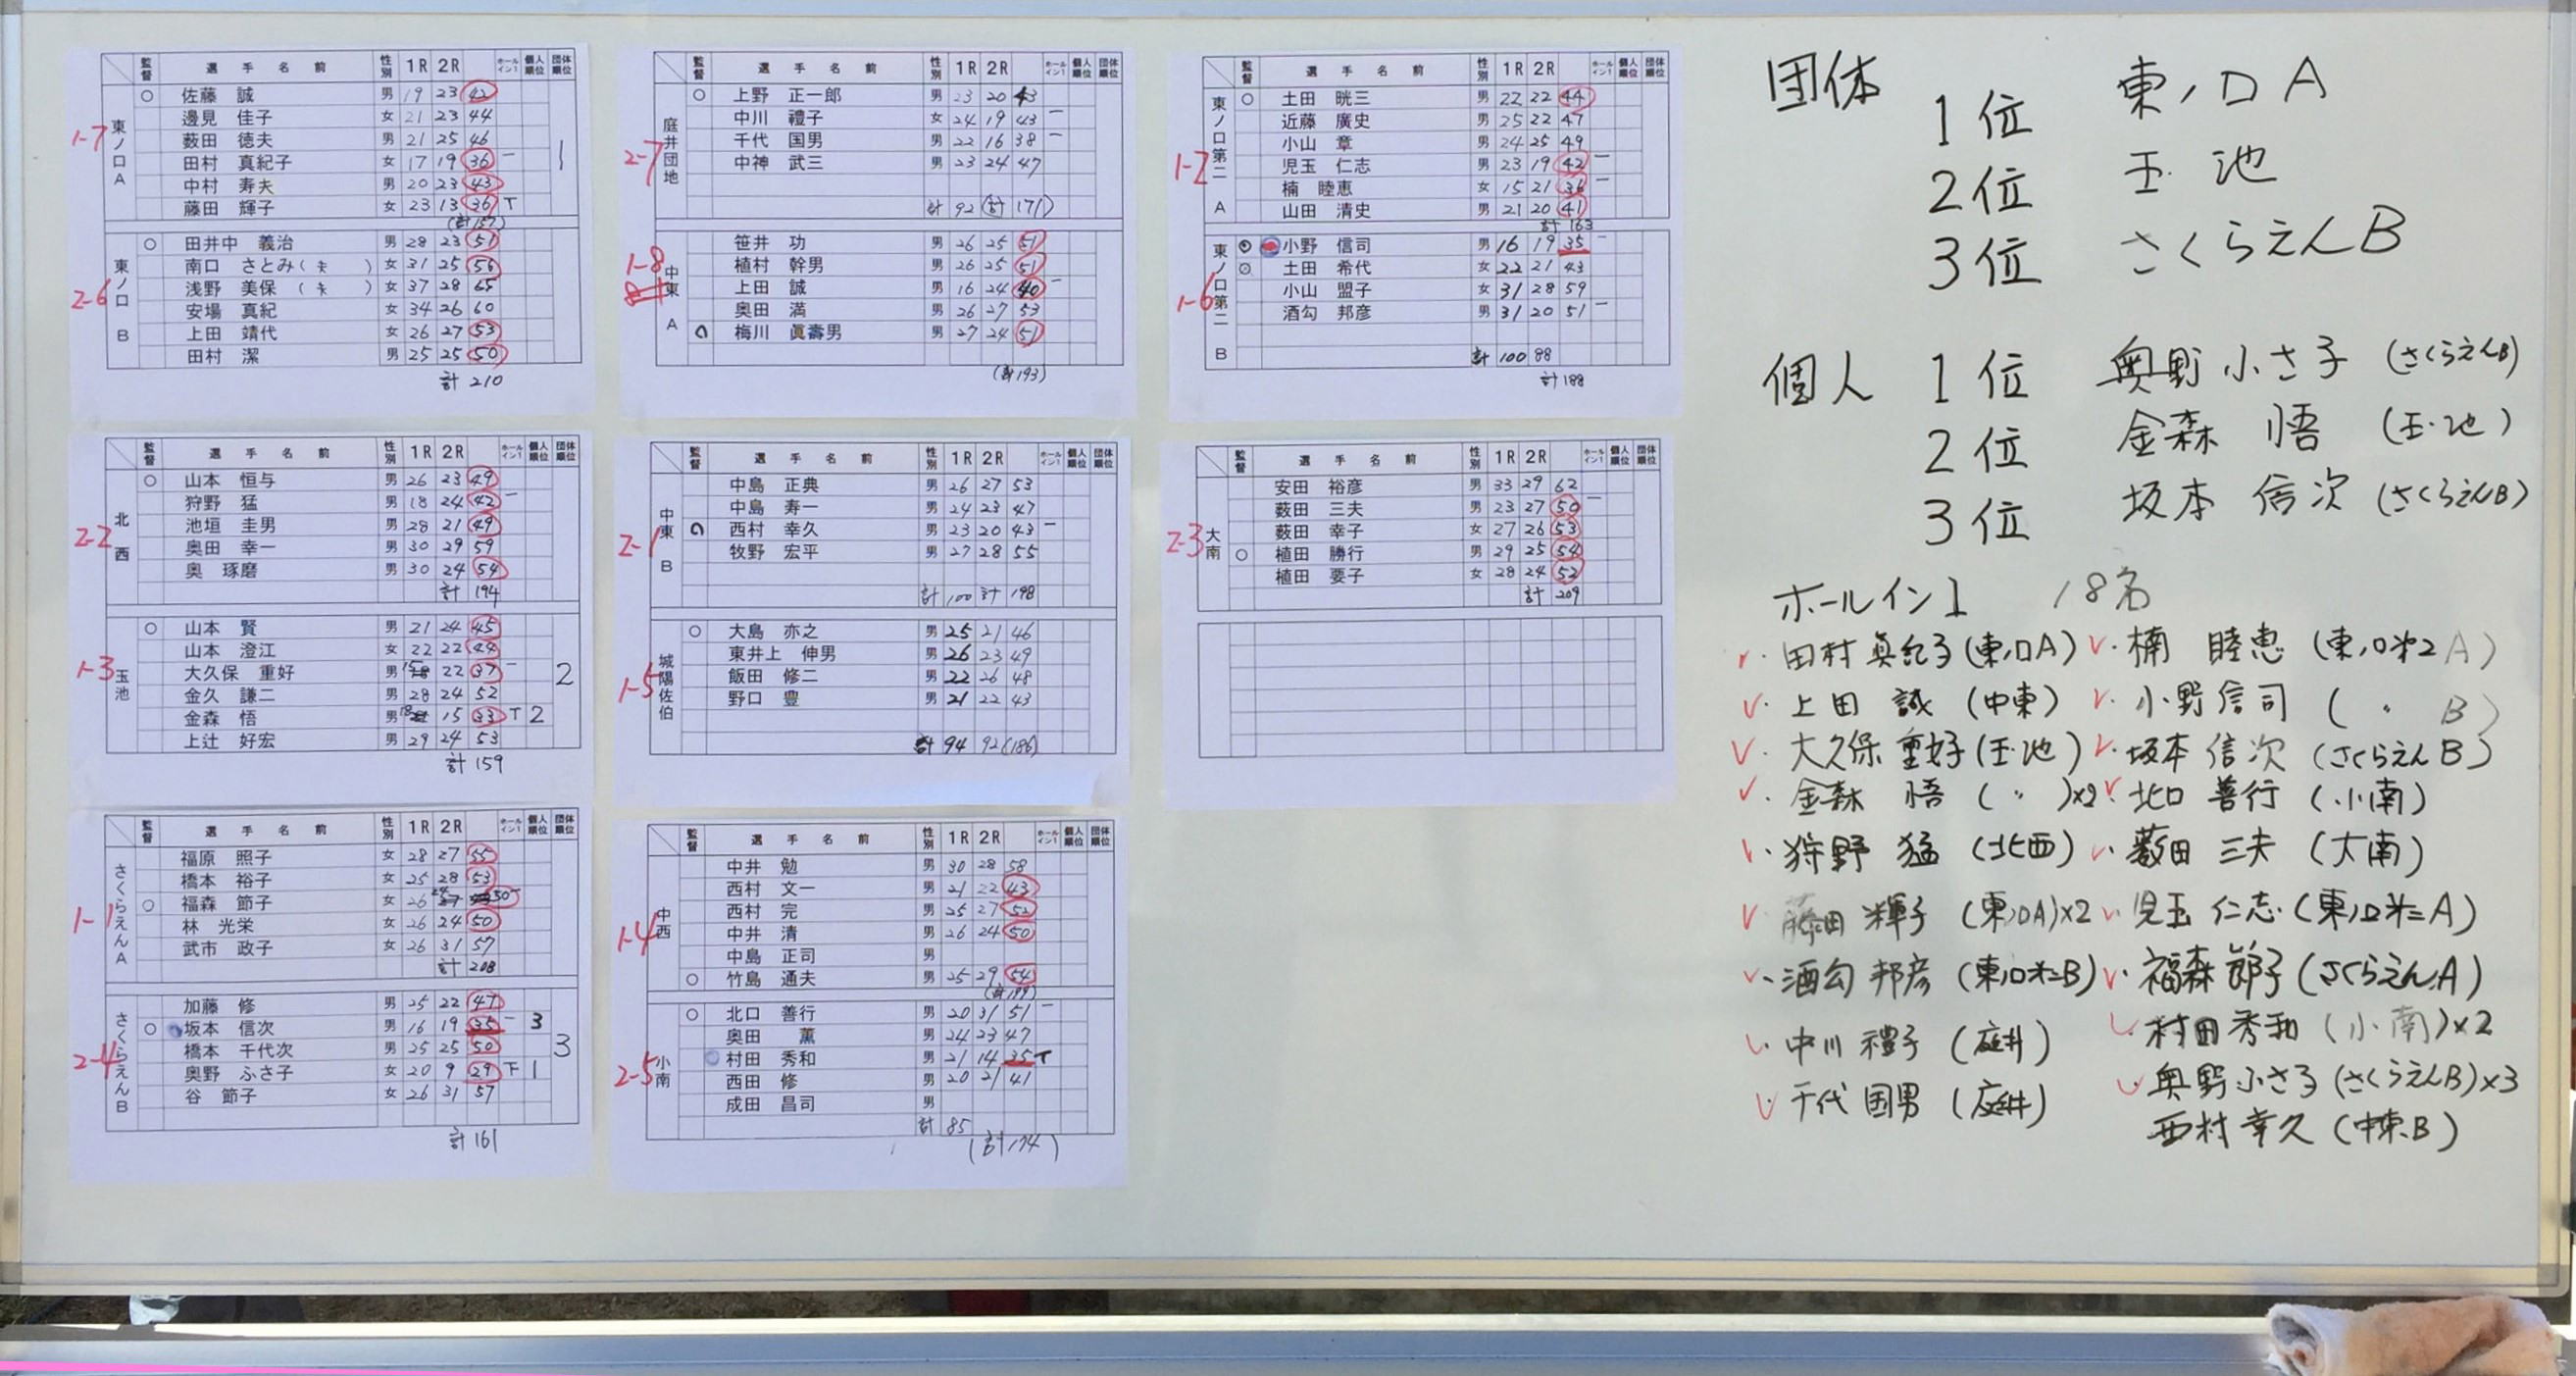 監督 選手名前 性別 1R 2R ホールイン1 個人順位 団体順位
1-7 東ノ口A 1
○ 佐藤 誠 男 19 23 42
邊見 佳子 女 21 23 44
薮田 徳夫 男 21 25 46
田村 真紀子 女 17 19 36 一
中村 寿夫 男 20 23 43
藤田 輝子 女 23 13 36 T
(計157)
2-6 東ノ口 B
○ 田井中 義治 男 28 23 51
南口 さとみ( ) 女 31 25 56
浅野 美保 ( ) 女 37 28 65
安場 真紀 女 34 26 60
上田 靖代 女 26 27 53
田村 潔 男 25 25 50
計 210
監督 選手名前 性別 1R 2R ホールイン1 個人順位 団体順位
2-2 北西
○ 山本 恒与 男 26 23 49
狩野 猛 男 18 24 42 一
池垣 圭男 男 28 21 49
奥田 幸一 男 30 29 59
奥 琢磨 男 30 24 54
計 194
1-3 玉池 2
○ 山本 賢 男 21 24 45
山本 澄江 女 22 22 44
大久保 重好 男 15 22 37 一
金久 謙二 男 28 24 52
金森 悟 男 18 15 33 T 2
上辻 好宏 男 29 24 53
計 159
監督 選手名前 性別 1R 2R ホールイン1 個人順位 団体順位
1-1 さくらえんA
福原 照子 女 28 27 55
橋本 裕子 女 25 28 53
○ 福森 節子 女 26 24 50 一
林 光栄 女 26 24 50
武市 政子 女 26 31 57
計 208
2-4 さくらえんB 3
加藤 修 男 25 22 47
○ 坂本 信次 男 16 19 35 一 3
橋本 千代次 男 25 25 50
奥野 ふさ子 女 20 9 29 下 1
谷 節子 女 26 31 57
計 161
監督 選手名前 性別 1R 2R ホールイン1 個人順位 団体順位
2-7 庭井団地
○ 上野 正一郎 男 23 20 43
中川 禮子 女 24 19 43 一
千代 国男 男 22 16 38 一
中神 武三 男 23 24 47
計 92 (計 171)
1-8 中東 A
笹井 功 男 26 25 51
植村 幹男 男 26 25 51
上田 誠 男 16 24 40 一
奥田 満 男 26 27 53
○ 梅川 眞壽男 男 27 24 51
(計193)
監督 選手名前 性別 1R 2R ホールイン1 個人順位 団体順位
2-1 中東 B
中島 正典 男 26 27 53
中島 寿一 男 24 23 47
○ 西村 幸久 男 23 20 43 一
牧野 宏平 男 27 28 55
計 100 計 198
1-5 城陽佐伯
○ 大島 亦之 男 25 21 46
東井上 伸男 男 26 23 49
飯田 修二 男 22 26 48
野口 豊 男 21 22 43
計 94 92 (186)
監督 選手名前 性別 1R 2R ホールイン1 個人順位 団体順位
1-4 中西
中井 勉 男 30 28 58
西村 文一 男 21 22 43
西村 完 男 25 27 52
中井 清 男 26 24 50
中島 正司 男
○ 竹島 通夫 男 25 29 54
(計199)
2-5 小南
○ 北口 善行 男 20 31 51 一
奥田 薫 男 24 23 47
村田 秀和 男 21 14 35 T
西田 修 男 20 21 41
成田 昌司 男
計 85
(計174)
監督 選手名前 性別 1R 2R ホールイン1 個人順位 団体順位
1-2 東ノ口第二 A
○ 土田 晄三 男 22 22 44
近藤 廣史 男 25 22 47
小山 章 男 24 25 49
児玉 仁志 男 23 19 42 一
楠 睦恵 女 15 21 36 一
山田 清史 男 21 20 41
計 163
1-6 東ノ口第二 B
○ 小野 信司 男 16 19 35 一
○ 土田 希代 女 22 21 43
小山 盟子 女 31 28 59
酒匂 邦彦 男 31 20 51 一
計 100 88
計188
監督 選手名前 性別 1R 2R ホールイン1 個人順位 団体順位
2-3 大南
安田 裕彦 男 33 29 62
薮田 三夫 男 23 27 50 一
薮田 幸子 女 27 26 53
○ 植田 勝行 男 29 25 54
植田 要子 女 28 24 52
計 209
団体 1位 東ノ口A
2位 玉池
3位 さくらえんB
個人 1位 奥野ふさ子 (さくらえんB)
2位 金森 悟 (玉池)
3位 坂本 信次 (さくらえんB)
ホールイン1 18名
・田村真紀子(東ノ口A) ・楠 睦恵 (東ノ口第2A)
・上田 誠 (中東) ・小野信司 ( 〃 B)
・大久保重好(玉池) ・坂本信次(さくらえんB)
・金森 悟 ( 〃 )×2 ・北口 善行 (小南)
・狩野 猛 (北西) ・薮田 三夫 (大南)
・藤田 輝子 (東ノ口A)×2 ・児玉 仁志 (東ノ口第二A)
・酒匂 邦彦 (東ノ口第二B) ・福森 節子(さくらえんA)
・中川 禮子 (庭井) ・村田秀和 (小南)×2
・千代 国男 (庭井) ・奥野ふさ子(さくらえんB)×3
西村幸久 (中東B)